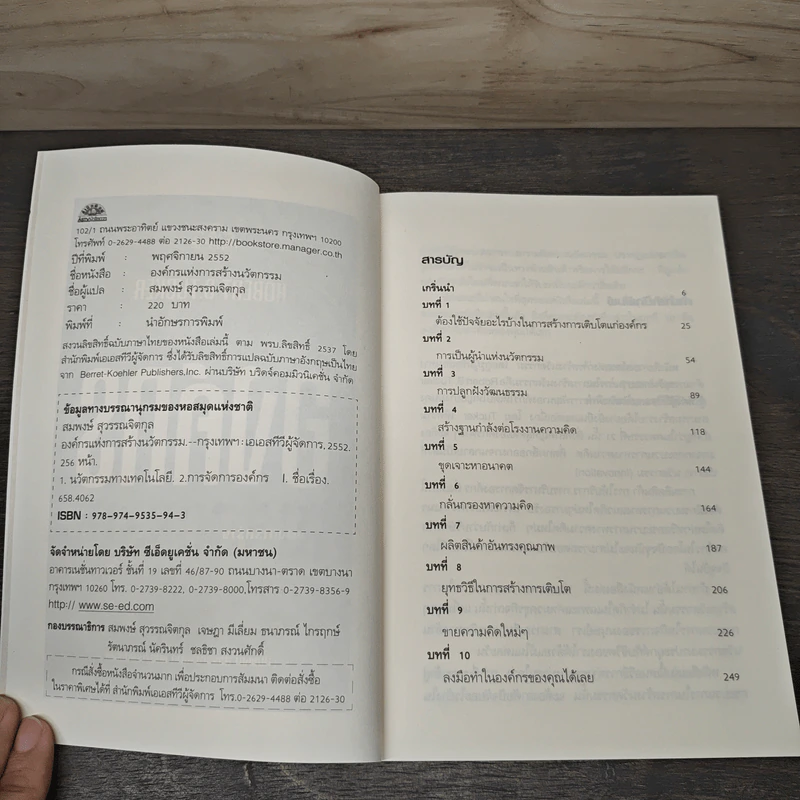 102/1 ถนนพระอาทิตย์ แขวงชนะสงคราม เขตพระนคร กรุงเทพฯ 10200
โทรศัพท์ 0-2629-4488 ต่อ 2126-30 http://bookstore.manager.co.th
ปีที่พิมพ์ : พฤศจิกายน 2552
ชื่อหนังสือ : องค์กรแห่งการสร้างนวัตกรรม
ชื่อผู้แปล : สมพงษ์ สุวรรณจิตกุล
ราคา : 220 บาท
พิมพ์ที่ : นำอักษรการพิมพ์
สงวนลิขสิทธิ์ฉบับภาษาไทยของหนังสือเล่มนี้ ตาม พรบ.ลิขสิทธิ์ 2537 โดย
สำนักพิมพ์เอเอสทีวีผู้จัดการ ซึ่งได้รับลิขสิทธิ์การแปลฉบับภาษาอังกฤษเป็นไทย
จาก Berret-Koehler Publishers,Inc. ผ่านบริษัท บริดจ์คอมมิวนิเคชั่น จำกัด
ข้อมูลทางบรรณานุกรมของหอสมุดแห่งชาติ
สมพงษ์ สุวรรณจิตกุล
องค์กรแห่งการสร้างนวัตกรรม.--กรุงเทพฯ: เอเอสทีวีผู้จัดการ, 2552.
256 หน้า.
1. นวัตกรรมทางเทคโนโลยี. 2.การจัดการองค์กร I. ชื่อเรื่อง.
658.4062
ISBN : 978-974-9535-94-3
จัดจำหน่ายโดย บริษัท ซีเอ็ดยูเคชั่น จำกัด (มหาชน)
อาคารเนชั่นทาวเวอร์ ชั้นที่ 19 เลขที่ 46/87-90 ถนนบางนา-ตราด เขตบางนา
กรุงเทพฯ 10260 โทร. 0-2739-8222, 0-2739-8000,โทรสาร 0-2739-8356-9
http:// www.se-ed.com
กองบรรณาธิการ สมพงษ์ สุวรรณจิตกุล เจษฎา มีเลี่ยม ธนาภรณ์ ไกรฤกษ์
รัตนาภรณ์ นัครินทร์ ชลธิชา สงวนศักดิ์
กรณีสั่งซื้อหนังสือจำนวนมาก เพื่อประกอบการสัมมนา ติดต่อสั่งซื้อ
ในราคาพิเศษได้ที่ สำนักพิมพ์เอเอสทีวีผู้จัดการ โทร.0-2629-4488 ต่อ 2126-30
สารบัญ
เกริ่นนำ 6
บทที่ 1
ต้องใช้ปัจจัยอะไรบ้างในการสร้างการเติบโตแก่องค์กร 25
บทที่ 2
การเป็นผู้นำแห่งนวัตกรรม 54
บทที่ 3
การปลูกฝังวัฒนธรรม 89
บทที่ 4
สร้างฐานกำลังต่อโรงงานความคิด 118
บทที่ 5
ขุดเจาะหาอนาคต 144
บทที่ 6
กลั่นกรองหาความคิด 164
บทที่ 7
ผลิตสินค้าอันทรงคุณภาพ 187
บทที่ 8
ยุทธวิธีในการสร้างการเติบโต 206
บทที่ 9
ขายความคิดใหม่ๆ 226
บทที่ 10
ลงมือทำในองค์กรของคุณได้เลย 249